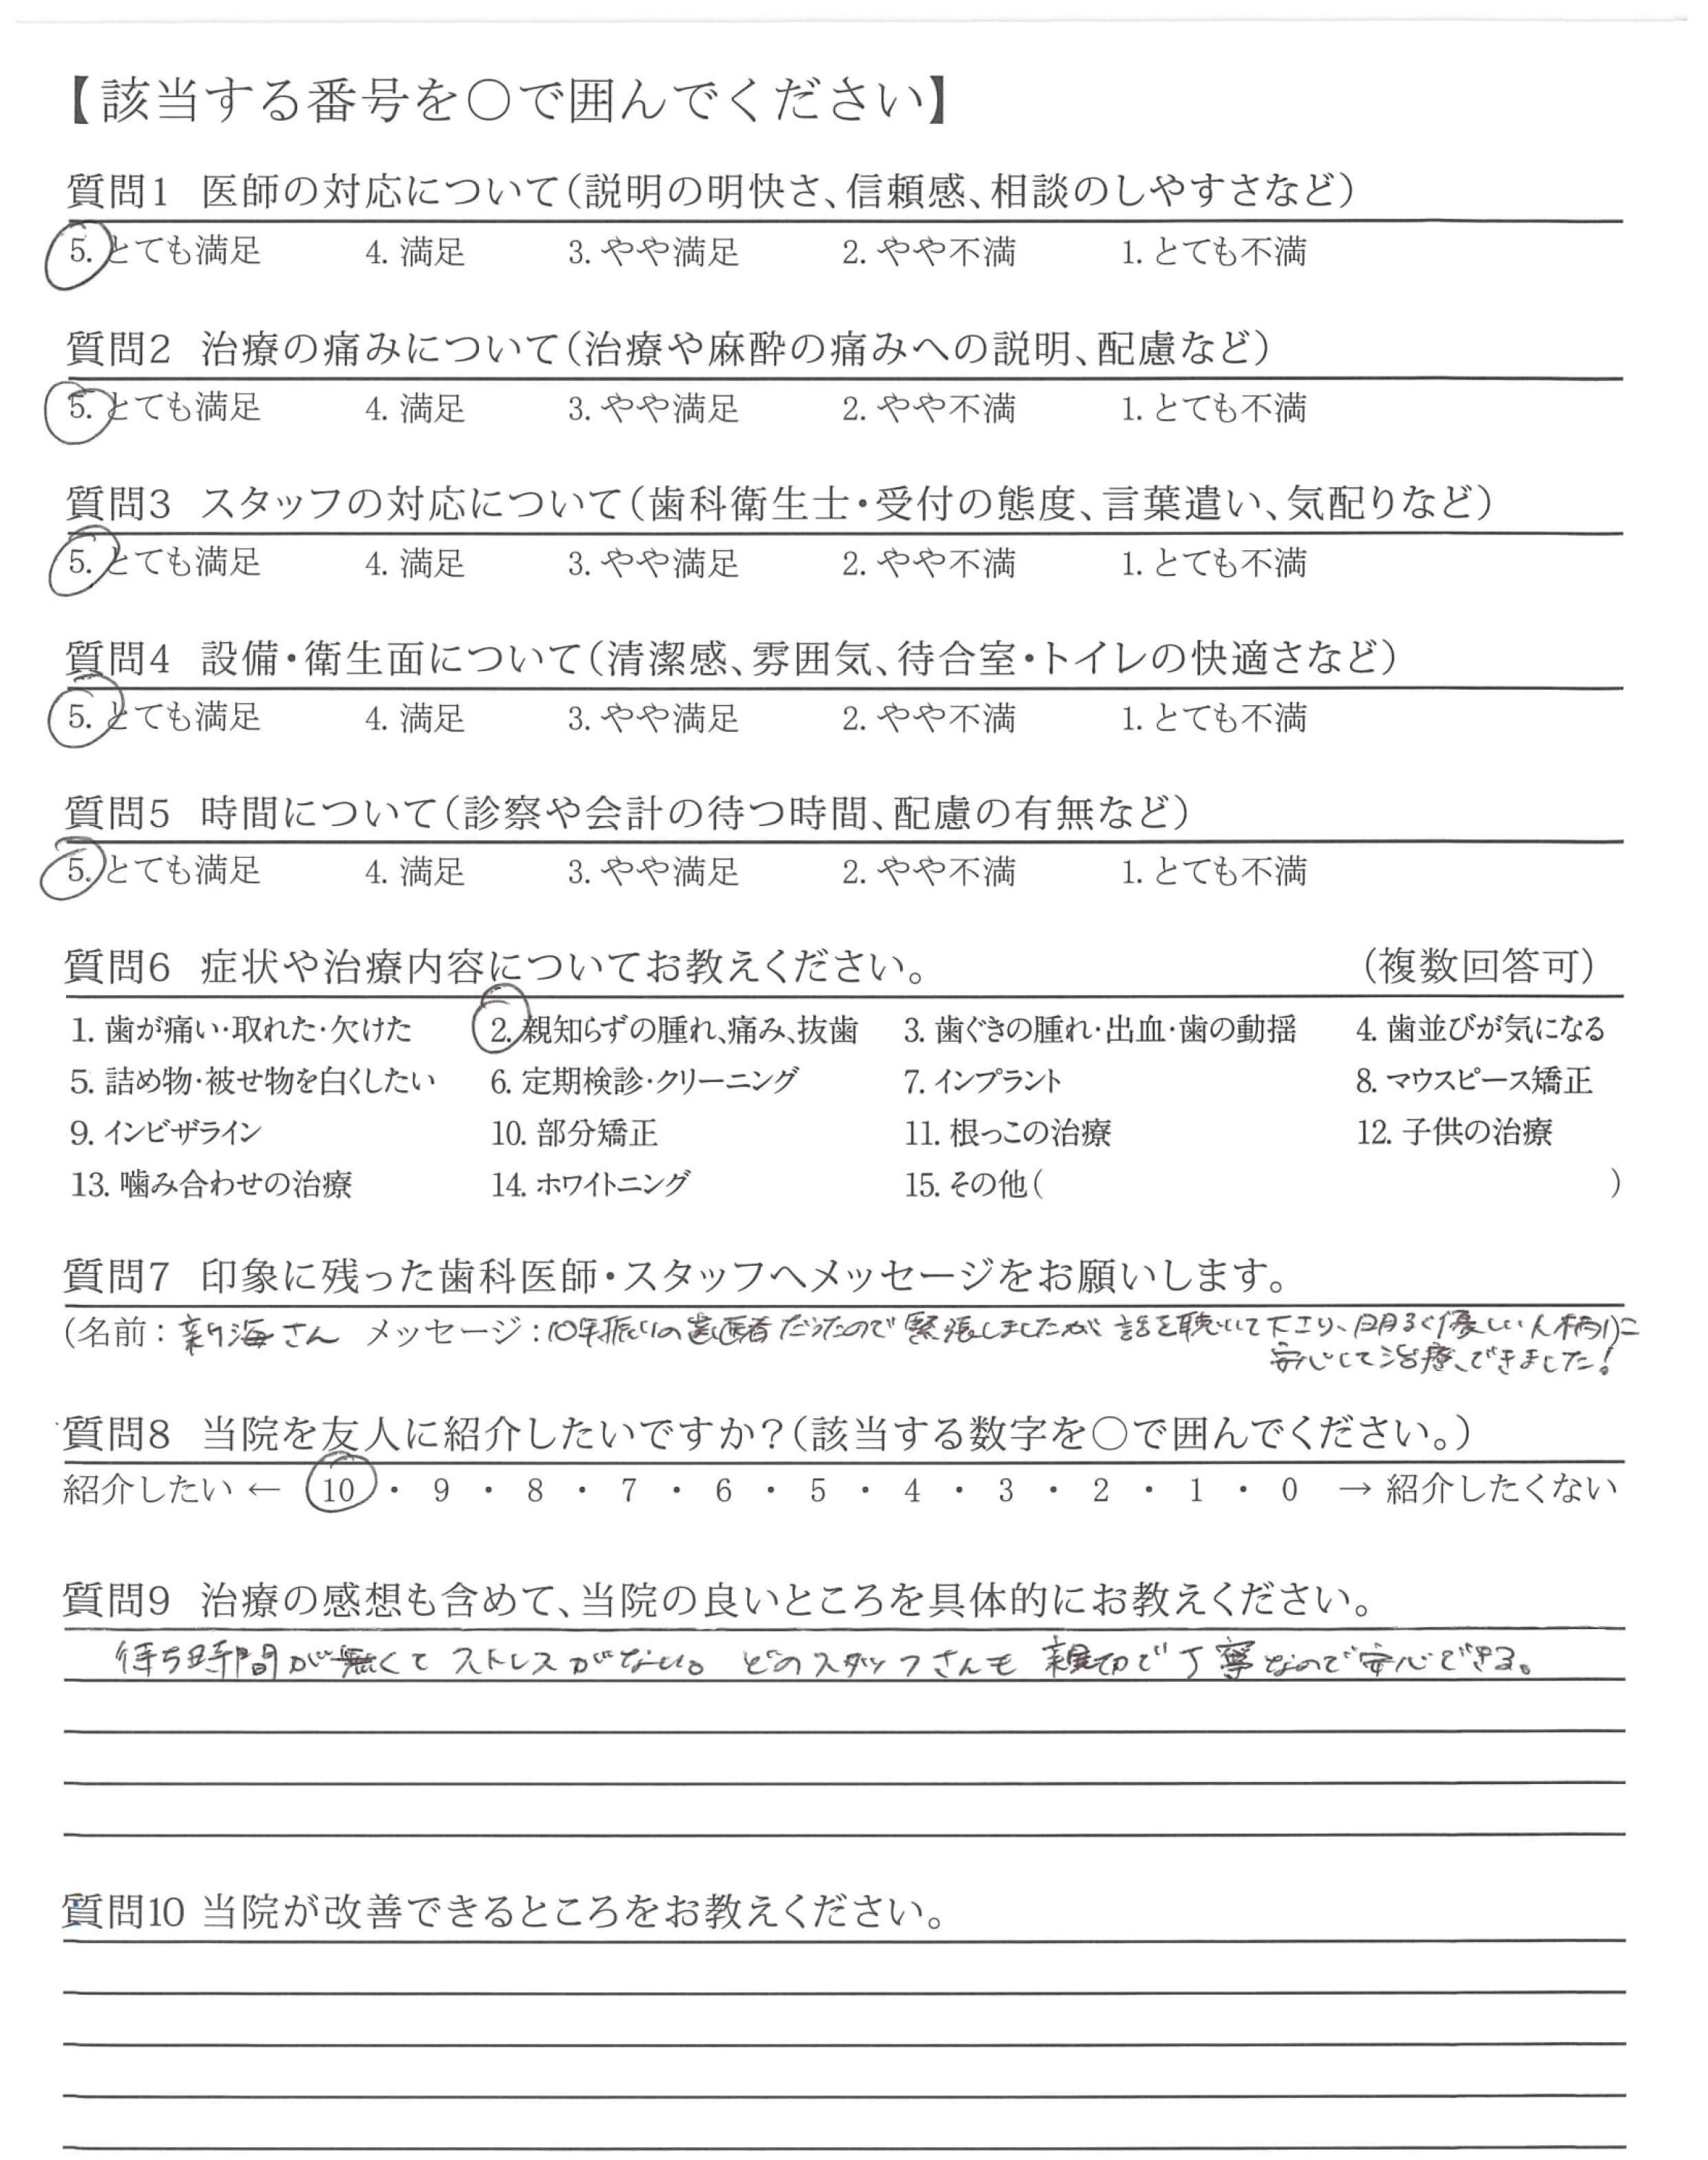 【該当する番号を〇で囲んでください】
質問1 医師の対応について（説明の明快さ、信頼感、相談のしやすさなど）
5. とても満足 4. 満足 3. やや満足 2. やや不満 1. とても不満
質問2 治療の痛みについて（治療や麻酔の痛みへの説明、配慮など）
5. とても満足 4. 満足 3. やや満足 2. やや不満 1. とても不満
質問3 スタッフの対応について（歯科衛生士・受付の態度、言葉遣い、気配りなど）
5. とても満足 4. 満足 3. やや満足 2. やや不満 1. とても不満
質問4 設備・衛生面について（清潔感、雰囲気、待合室・トイレの快適さなど）
5. とても満足 4. 満足 3. やや満足 2. やや不満 1. とても不満
質問5 時間について（診察や会計の待つ時間、配慮の有無など）
5. とても満足 4. 満足 3. やや満足 2. やや不満 1. とても不満
質問6 症状や治療内容についてお教えください。 （複数回答可）
1. 歯が痛い・取れた・欠けた 2. 親知らずの腫れ、痛み、抜歯 3. 歯ぐきの腫れ・出血・歯の動揺 4. 歯並びが気になる
5. 詰め物・被せ物を白くしたい 6. 定期検診・クリーニング 7. インプラント 8. マウスピース矯正
9. インビザライン 10. 部分矯正 11. 根っこの治療 12. 子供の治療
13. 噛み合わせの治療 14. ホワイトニング 15. その他（ ）
質問7 印象に残った歯科医師・スタッフへメッセージをお願いします。
（名前：新海さん メッセージ：10年振りの歯医者だったので緊張しましたが 話を聴いて下さり、明るく優しい人柄に
安心して治療できました！
質問8 当院を友人に紹介したいですか？（該当する数字を〇で囲んでください。）
紹介したい ← 10 ・ 9 ・ 8 ・ 7 ・ 6 ・ 5 ・ 4 ・ 3 ・ 2 ・ 1 ・ 0 → 紹介したくない
質問9 治療の感想も含めて、当院の良いところを具体的にお教えください。
待ち時間が無くてストレスがない。どのスタッフさんも親切で丁寧なので安心できる。
質問10 当院が改善できるところをお教えください。